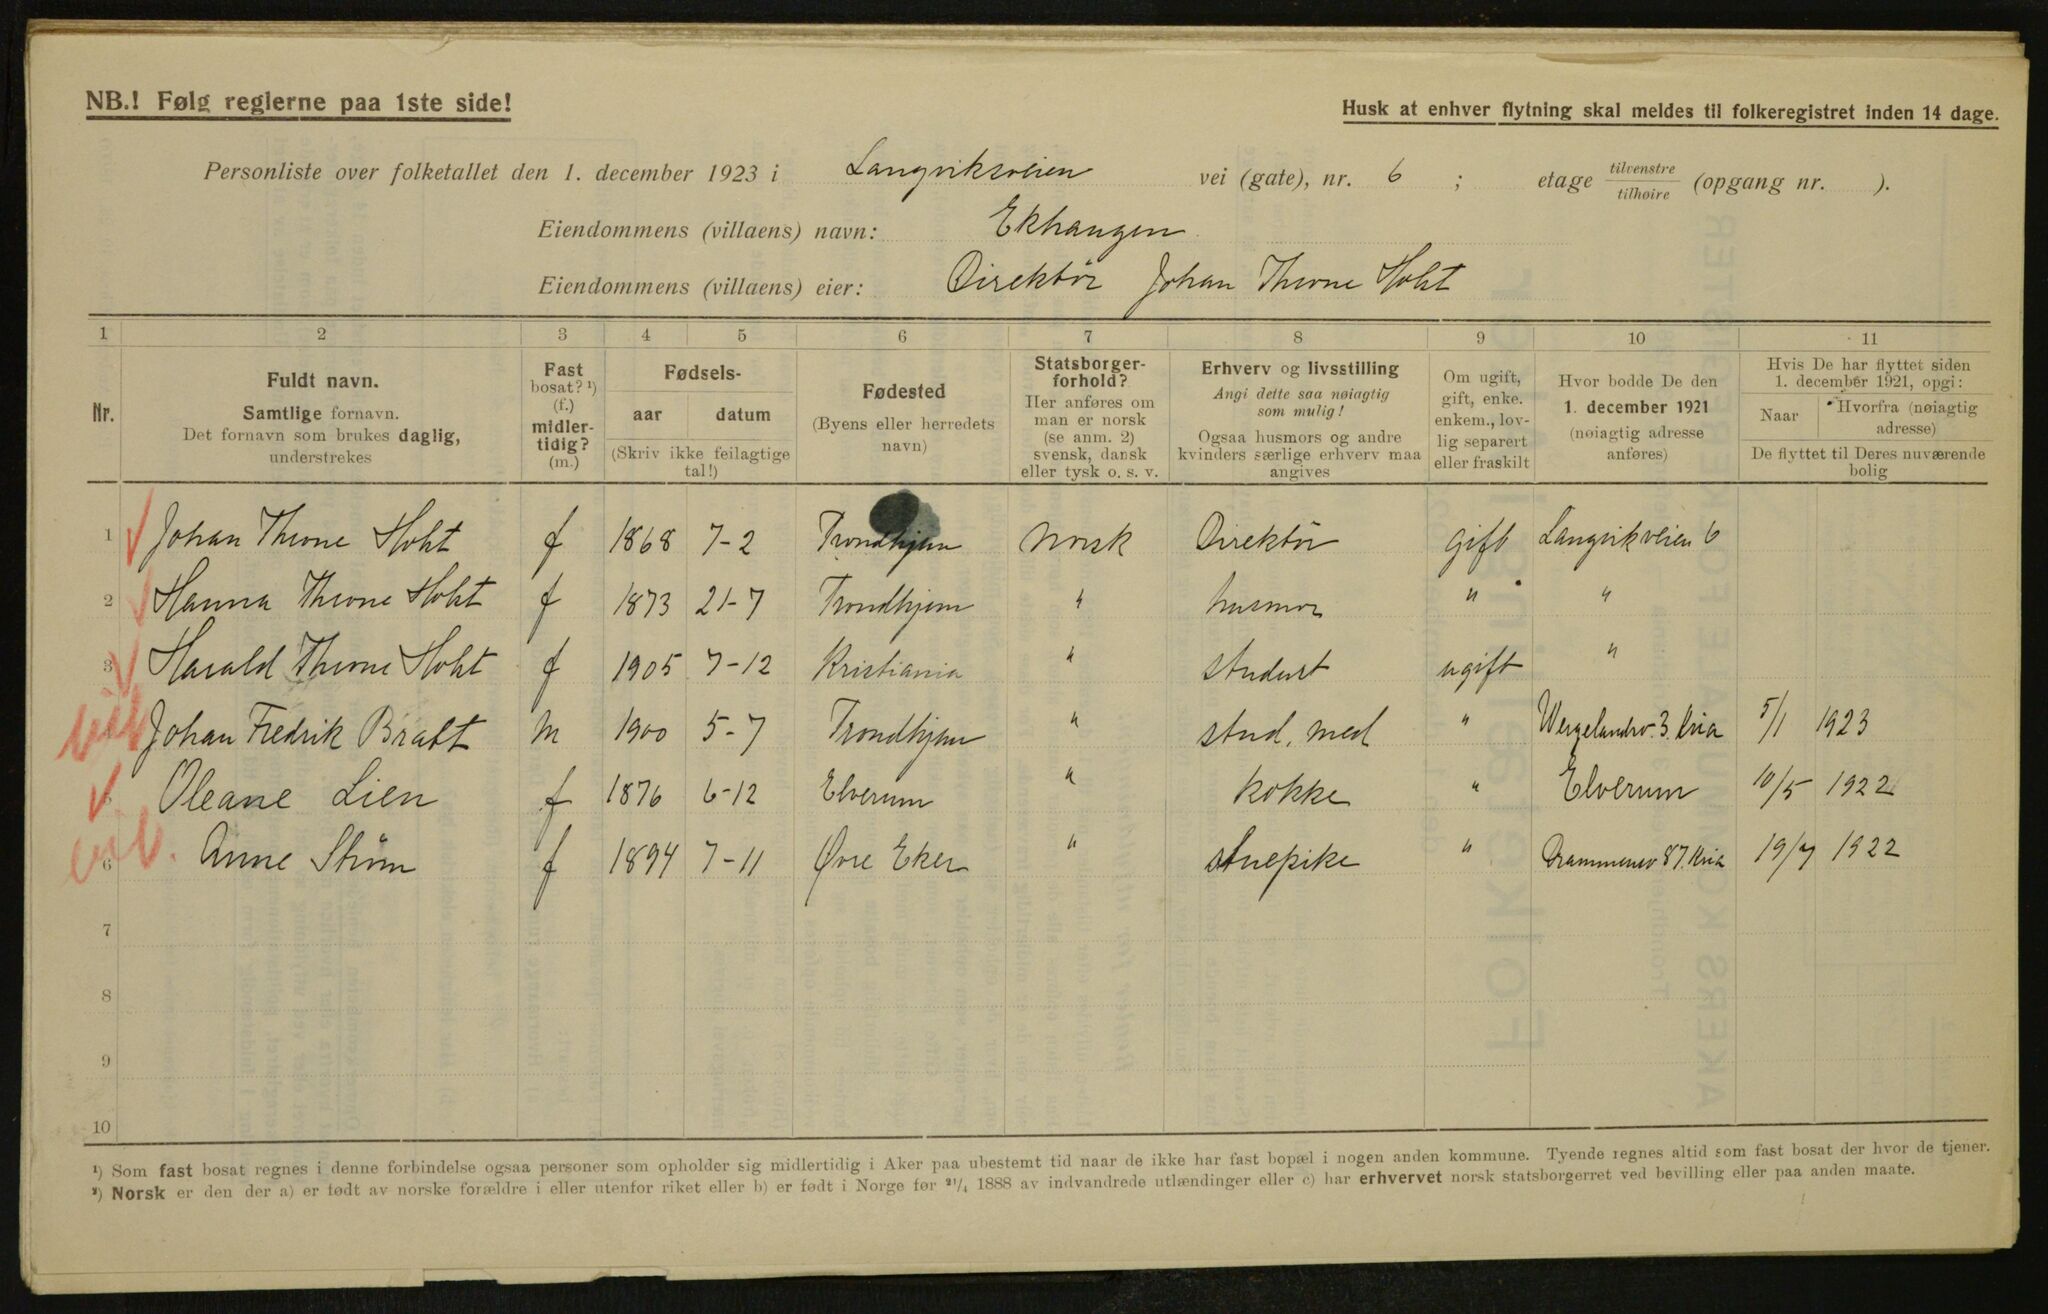 NB.! Følg reglerne paa 1ste side!
Husk at enhver flytning skal meldes til folkeregistret inden 14 dage.
Personliste over folketallet den 1. december 1923 i Langviksveien vei (gate), nr. 6 ; etage tilvenstre / tilhøire (opgang nr. ).
Eiendommens (villaens) navn: Ekhaugen
Eiendommens (villaens) eier: Direktör Johan Throne Holst
1 2 3 4 5 6 7 8 9 10 11
Nr.
Fuldt navn.
Samtlige fornavn.
Det fornavn som brukes daglig,
understrekes
Fast
bosat? ¹)
(f.)
midler-
tidig?
(m.)
Fødsels-
aar datum
(Skriv ikke feilagtige
tal!)
Fødested
(Byens eller herredets
navn)
Statsborger-
forhold?
Her anføres om
man er norsk
(se anm. 2)
svensk, dansk
eller tysk o. s. v.
Erhverv og livsstilling
Angi dette saa nøiagtig
som mulig!
Ogsaa husmors og andre
kvinders særlige erhverv maa
angives
Om ugift,
gift, enke.
enkem., lov-
lig separert
eller fraskilt
Hvor bodde De den
1. december 1921
(nøiagtig adresse
anføres)
Hvis De har flyttet siden
1. december 1921, opgi:
Naar Hvorfra (nøiagtig
adresse)
De flyttet til Deres nuværende
bolig
1 Johan Throne Holst f 1868 7-2 Trondhjem Norsk Direktör gift Langvikveien 6
2 Hanna Throne Holst f 1873 21-7 Trondhjem " husmor " "
3 Harald Throne Holst f 1905 7-12 Kristiania " student ugift "
Johan Fredrik Bratt m 1900 5-7 Trondhjem " stud. med " Wergelandsv. 3. Kria 5/1 1923
5 Oleane Lien f 1876 6-12 Elverum " kokke " Elverum 10/5 1922
6 Anne Strøm f 1894 7-11 Øvre Eker " stuepike " Drammensv 87. Kria 19/7 1922
7
8
9
10
¹) Som fast bosat regnes i denne forbindelse ogsaa personer som opholder sig midlertidig i Aker paa ubestemt tid naar de ikke har fast bopæl i nogen anden kommune. Tyende regnes altid som fast bosat der hvor de tjener.
²) Norsk er den der a) er født av norske forældre i eller utenfor riket eller b) er født i Norge før ²¹/₄ 1888 av indvandrede utlændinger eller c) har erhvervet norsk statsborgerret ved bevilling eller paa anden maate.